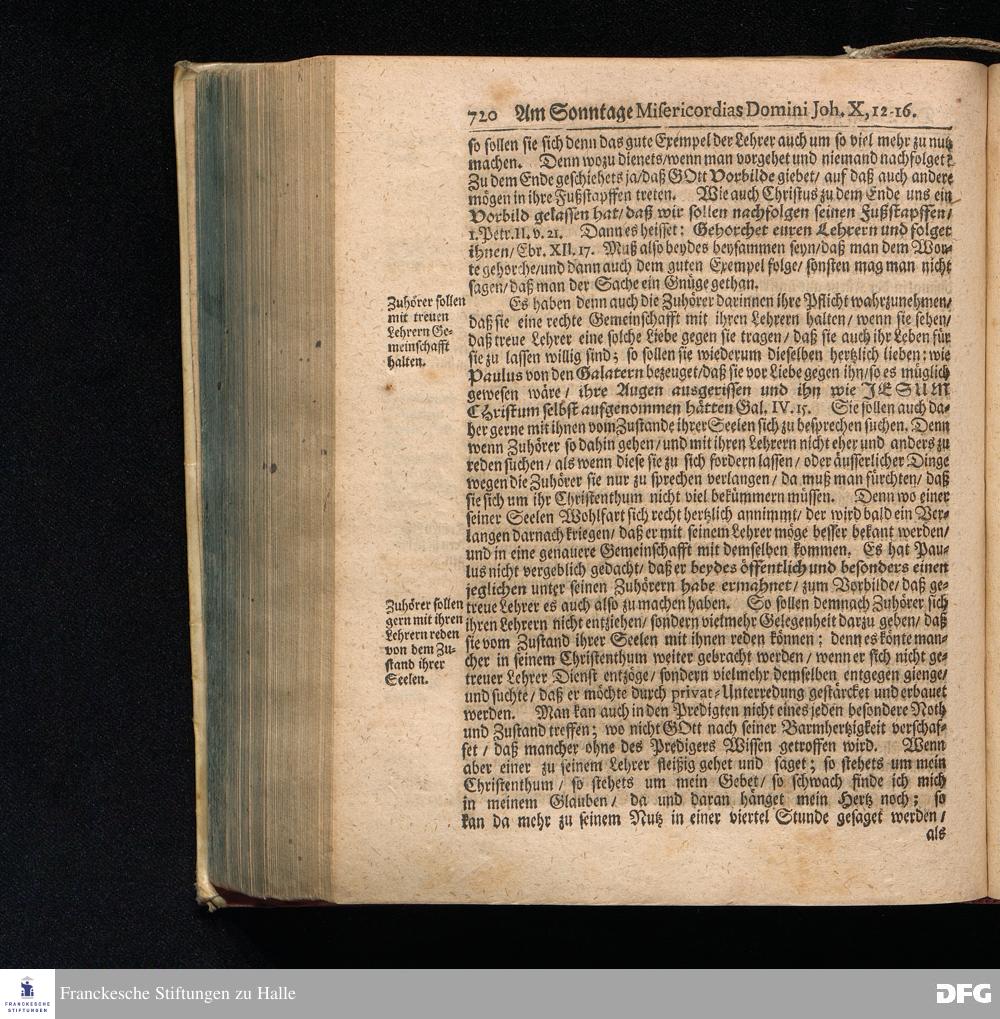 720 Am Sonntage Misericordias Domini Joh. X, 12-16.
so sollen sie sich denn das gute Exempel der Lehrer auch um so viel mehr zu nutz
machen. Denn wozu dienets/wenn man vorgehet und niemand nachfolget?
Zu dem Ende geschiehets ja/daß GOtt Vorbilde giebet/ auf daß auch andere
mögen in ihre Fußstapffen treten. Wie auch Christus zu dem Ende uns ein
Vorbild gelassen hat/daß wir sollen nachfolgen seinen Fußstapffen/
1. Petr. II. v. 21. Dann es heisset: Gehorchet euren Lehrern und folget
ihnen/Ebr. XII. 17. Muß also beydes beysammen seyn/daß man dem Wor-
te gehorche/und dann auch dem guten Exempel folge/ sonsten mag man nicht
sagen/daß man der Sache ein Gnüge gethan.
Zuhörer sollen
mit treuen
Lehrern Ge-
meinschafft
halten.
Es haben denn auch die Zuhörer darinnen ihre Pflicht wahrzunehmen/
daß sie eine rechte Gemeinschafft mit ihren Lehrern halten/ wenn sie sehen/
daß treue Lehrer eine solche Liebe gegen sie tragen/ daß sie auch ihr Leben für
sie zu lassen willig sind; so sollen sie wiederum dieselben hertzlich lieben: wie
Paulus von den Galatern bezeuget/daß sie vor Liebe gegen ihn/so es müglich
gewesen wäre/ ihre Augen ausgerissen und ihn wie JESUM
Christum selbst aufgenommen hätten Gal. IV. 15. Sie sollen auch da-
her gerne mit ihnen vom Zustande ihrer Seelen sich zu besprechen suchen. Denn
wenn Zuhörer so dahin gehen/und mit ihren Lehrern nicht eher und anders zu
reden suchen/ als wenn diese sie zu sich fordern lassen/ oder äusserlicher Dinge
wegen die Zuhörer sie nur zu sprechen verlangen/ da muß man fürchten/ daß
sie sich um ihr Christenthum nicht viel bekümmern müssen. Denn wo einer
seiner Seelen Wohlfart sich recht hertzlich annimmt/ der wird bald ein Ver-
langen darnach kriegen/ daß er mit seinem Lehrer möge besser bekant werden/
und in eine genauere Gemeinschafft mit demselben kommen. Es hat Pau-
lus nicht vergeblich gedacht/ daß er beydes öffentlich und besonders einen
jeglichen unter seinen Zuhörern habe ermahnet/ zum Vorbilde/ daß ge-
treue Lehrer es auch also zu machen haben. So sollen demnach Zuhörer sich
Zuhörer sollen
gern mit ihren
Lehrern reden
von dem Zu-
stand ihrer
Seelen.
ihren Lehrern nicht entziehen/ sondern vielmehr Gelegenheit darzu geben/ daß
sie vom Zustand ihrer Seelen mit ihnen reden können: denn es könte man-
cher in seinem Christenthum weiter gebracht werden/ wenn er sich nicht ge-
treuer Lehrer Dienst entzöge/ sondern vielmehr demselben entgegen gienge/
und suchte/ daß er möchte durch privat-Unterredung gestärcket und erbauet
werden. Man kan auch in den Predigten nicht eines jeden besondere Noth
und Zustand treffen; wo nicht GOtt nach seiner Barmhertzigkeit verschaf-
fet/ daß mancher ohne des Predigers Wissen getroffen wird. Wenn
aber einer zu seinem Lehrer fleißig gehet und saget; so stehets um mein
Christenthum/ so stehets um mein Gebet/ so schwach finde ich mich
in meinem Glauben/ da und daran hänget mein Hertz noch; so
kan da mehr zu seinem Nutz in einer viertel Stunde gesaget werden/
als
FRANCKESCHE
STIFTUNGEN
Franckesche Stiftungen zu Halle
DFG